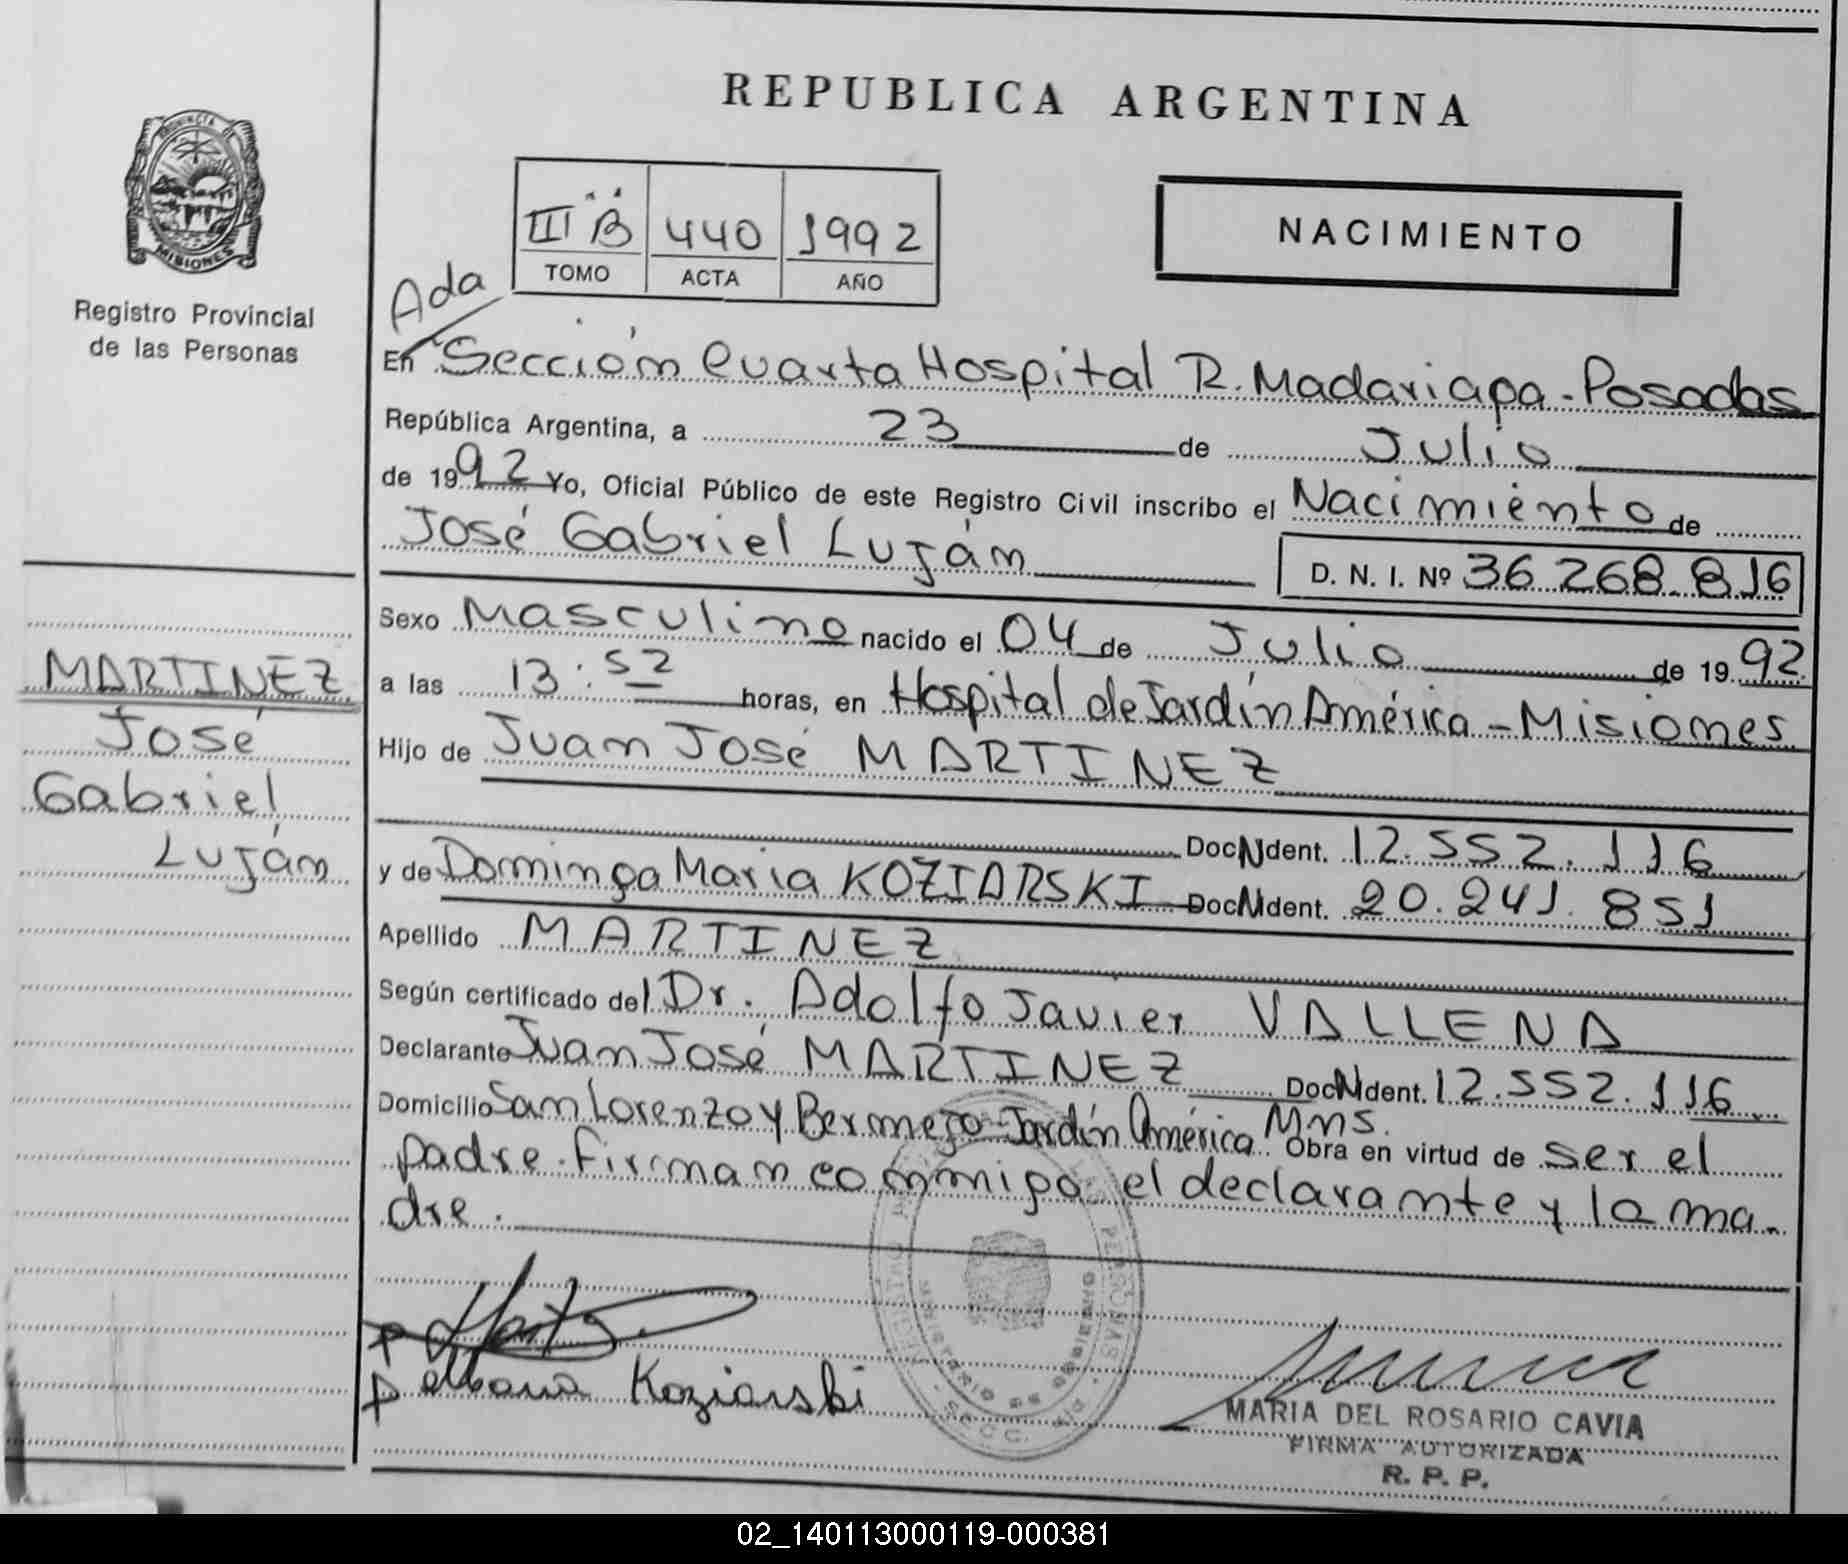 REPUBLICA ARGENTINA
PROVINCIA DE
MISIONES
Registro Provincial
de las Personas
III "B" 440 1992
TOMO ACTA AÑO
NACIMIENTO
Ada
En Sección Cuarta Hospital R. Madariaga - Posadas
República Argentina, a 23 de Julio
de 1992 Yo, Oficial Público de este Registro Civil inscribo el Nacimiento de
José Gabriel Luján
D. N. I. Nº 36.268.816
Sexo Masculino nacido el 04 de Julio de 1992
a las 13:52 horas, en Hospital de Jardín América - Misiones
Hijo de Juan José MARTINEZ
DocNdent. 12.552.116
y de Dominga Maria KOZIARSKI DocNdent. 20.241.851
Apellido MARTINEZ
Según certificado del Dr. Adolfo Javier VALLENA
Declarante Juan José MARTINEZ DocNdent. 12.552.116
Domicilio San Lorenzo y Bermejo - Jardín América Mns. Obra en virtud de ser el
padre. Firman conmigo el declarante y la ma-
dre.
MARTINEZ
José
Gabriel
Luján
Koziarski
MINISTERIO DE GOBIERNO
MARIA DEL ROSARIO CAVIA
FIRMA AUTORIZADA
R. P. P.
02_140113000119-000381